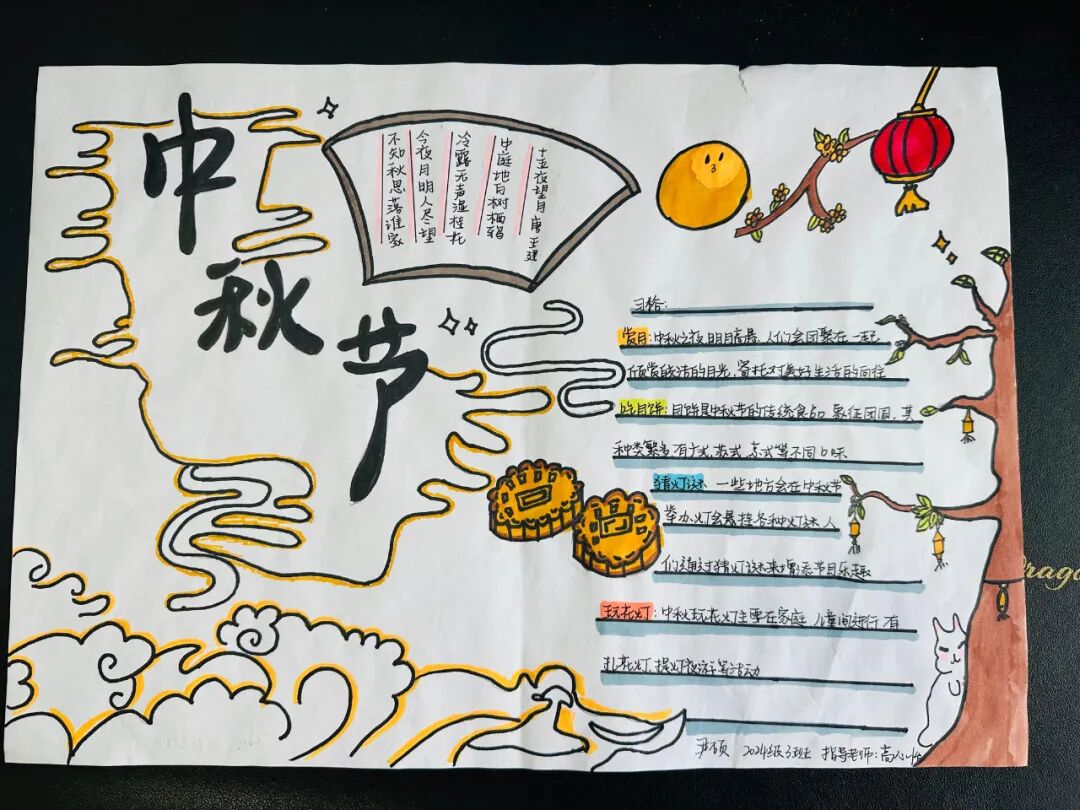 中秋节
十五夜望月 唐 王建
中庭地白树栖鸦
冷露无声湿桂花
今夜月明人尽望
不知秋思落谁家
习俗:
赏月:中秋之夜,明月高悬,人们会团聚在一起
欣赏皎洁的月光,寄托对美好生活的向往
吃月饼:月饼是中秋节的传统食品,象征团圆,其
种类繁多,有广式,苏式,京式等不同口味
猜灯谜:一些地方会在中秋节
举办灯会悬挂各种灯谜,人
们通过猜灯谜来增添节日乐趣
玩花灯:中秋玩花灯主要在家庭,儿童间进行,有
扎花灯,提灯夜游等活动
尹硕 2024级3班 指导老师:高